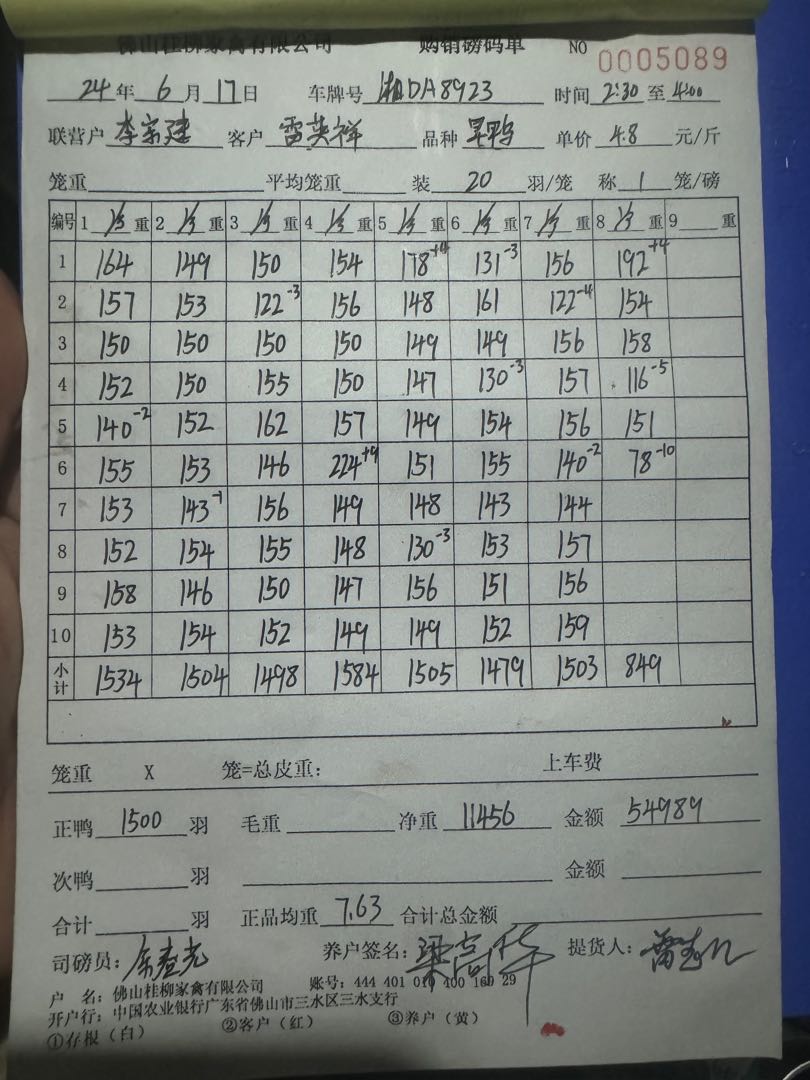 佛山桂柳家禽有限公司 购销磅码单 NO 0005089
24年 6月 17日 车牌号 湘DA8923 时间 2:30 至 4:00
联营户 李宗建 客户 雷英祥 品种 旱鸭 单价 4.8 元/斤
笼重 平均笼重 装 20 羽/笼 称 1 笼/磅
编号 1 1/3 重 2 1/3 重 3 1/3 重 4 1/3 重 5 1/3 重 6 1/3 重 7 1/3 重 8 1/3 重 9 重
1 164 149 150 154 178+4 131-3 156 192+4
2 157 153 122-3 156 148 161 122-4 154
3 150 150 150 150 149 149 156 158
4 152 150 155 150 147 130-3 157 116-5
5 140-2 152 162 157 149 154 156 151
6 155 153 146 224+9 151 155 140-2 78-10
7 153 143-1 156 149 148 143 144
8 152 154 155 148 130-3 153 157
9 158 146 150 147 156 151 156
10 153 154 152 149 149 152 159
小计 1534 1504 1498 1584 1505 1479 1503 849
笼重 X 笼=总皮重: 上车费
正鸭 1500 羽 毛重 净重 11456 金额 54989
次鸭 羽 金额
合计 羽 正品均重 7.63 合计总金额
司磅员: 养户签名: 梁高华 提货人:
户 名: 佛山桂柳家禽有限公司 账号: 444 401 010 400 169 29
开户行: 中国农业银行广东省佛山市三水区三水支行
①存根(白) ②客户(红) ③养户(黄)